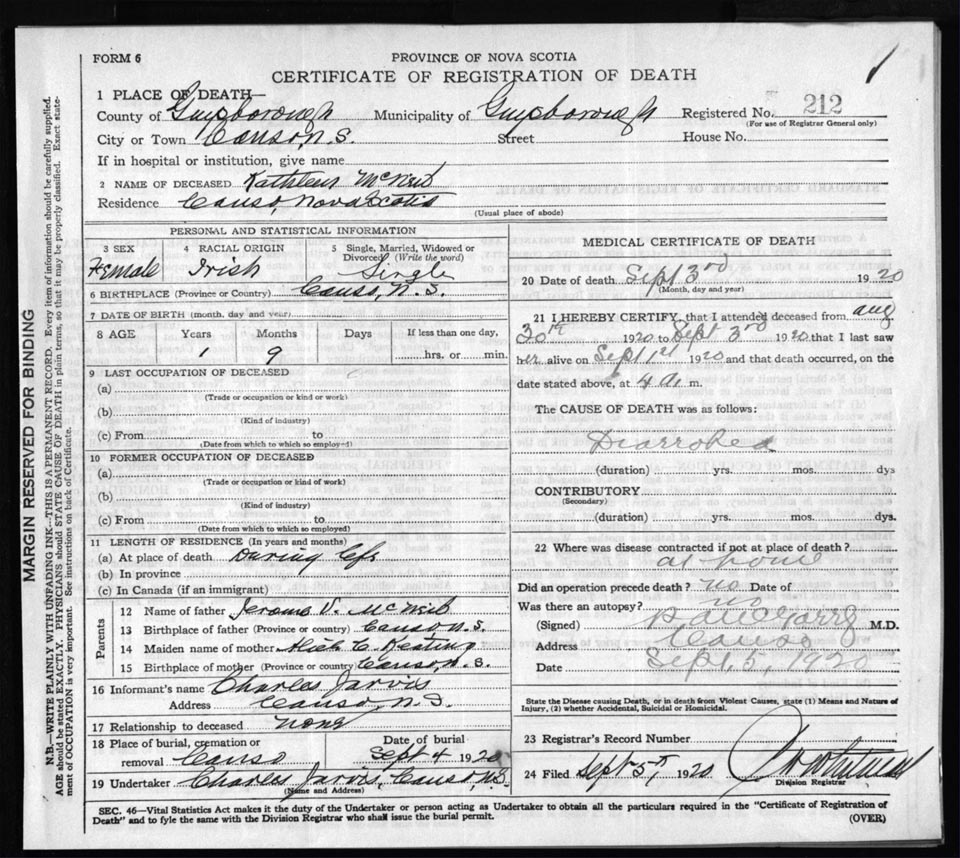 FORM 6
PROVINCE OF NOVA SCOTIA
CERTIFICATE OF REGISTRATION OF DEATH
1 PLACE OF DEATH—
County of Guysborough Municipality of Guysborough Registered No. 212
(For use of Registrar General only)
City or Town Canso, N.S. Street House No.
If in hospital or institution, give name
2 NAME OF DECEASED Kathleen McNeil
Residence Canso, Nova Scotia
(Usual place of abode)
PERSONAL AND STATISTICAL INFORMATION
3 SEX 4 RACIAL ORIGIN 5 Single, Married, Widowed or Divorced (Write the word)
Female Irish Single
6 BIRTHPLACE (Province or Country) Canso, N.S.
7 DATE OF BIRTH (month, day and year)
8 AGE Years Months Days If less than one day,
1 9 hrs. or min.
9 LAST OCCUPATION OF DECEASED
(a)
(Trade or occupation or kind or work)
(b)
(Kind of industry)
(c) From to
(Date from which to which so employed)
10 FORMER OCCUPATION OF DECEASED
(a)
(Trade or occupation or kind of work)
(b)
(Kind of industry)
(c) From to
(Date from which to which so employed)
11 LENGTH OF RESIDENCE (In years and months)
(a) At place of death During life
(b) In province
(c) In Canada (if an immigrant)
Parents
12 Name of father Jerome V. McNeil
13 Birthplace of father (Province or country) Canso N.S.
14 Maiden name of mother C. Keating
15 Birthplace of mother (Province or country) Canso, N.S.
16 Informant's name Charles Jarvis
Address Canso, N.S.
17 Relationship to deceased none
18 Place of burial, cremation or removal Canso Date of burial Sept 4 1920
19 Undertaker Charles Jarvis, Canso, N.S.
(Name and Address)
MEDICAL CERTIFICATE OF DEATH
20 Date of death Sept 3rd 1920
(Month, day and year)
21 I HEREBY CERTIFY, that I attended deceased from Aug
30th 1920 to Sept 3rd 1920 that I last saw
her alive on Sept 1st 1920 and that death occurred, on the
date stated above, at 4 a. m.
The CAUSE OF DEATH was as follows:
Diarrohea
(duration) yrs. mos. dys
CONTRIBUTORY
(Secondary)
(duration) yrs. mos. dys.
22 Where was disease contracted if not at place of death?
at home
Did an operation precede death? no Date of
Was there an autopsy? no
(Signed) M.D.
Address Canso
Date Sept. 5, 1920
State the Disease causing Death, or in death from Violent Causes, state (1) Means and Nature of
Injury, (2) whether Accidental, Suicidal or Homicidal.
23 Registrar's Record Number
24 Filed Sept 5th 1920
Division Registrar
SEC. 46—Vital Statistics Act makes it the duty of the Undertaker or person acting as Undertaker to obtain all the particulars required in the "Certificate of Registration of
Death" and to fyle the same with the Division Registrar who shall issue the burial permit.
(OVER)
MARGIN RESERVED FOR BINDING
N.B.—WRITE PLAINLY WITH UNFADING INK—THIS IS A PERMANENT RECORD. Every item of information should be carefully supplied.
AGE should be stated EXACTLY. PHYSICIANS should STATE CAUSE OF DEATH in plain terms, so that it may be properly classified. Exact state-
ment of OCCUPATION is very important. See instructions on back of Certificate.